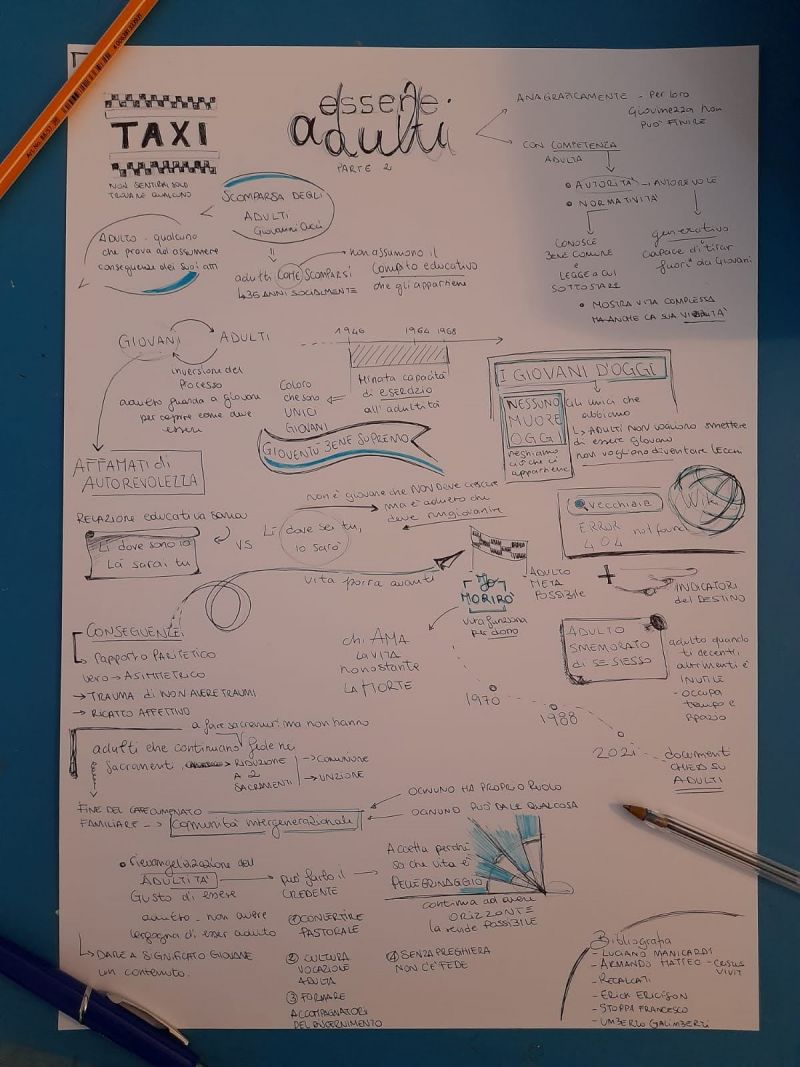 TAXI
NON SENTIRSI SOLO
TROVARE QUALCUNO
essere
adulti
PARTE 2
ANAGRAFICAMENTE - Per loro
Giovinezza non
PUO' FINIRE
CON COMPETENZA
ADULTA
• AUTORITA' → AUTOREVOLE
• NORMATIVITA'
CONOSCE
BENE COMUNE
e
LEGGE A CUI
SOTTOSTARE
generativo
capace di tirar
fuori dai Giovani
• MOSTRA VITA COMPLESSA
MA ANCHE LA SUA
SCOMPARSA DEGLI
ADULTI
Giovanni Cucci
ADULTO - qualcuno
che prova ad assumere
conseguenze dei suoi atti
adulti COME SCOMPARSI
↳ 36 ANNI SOCIALMENTE
non assumono il
compito educativo
che gli appartiene
GIOVANI ADULTI
inversione del
Processo
adulto guarda a giovane
per capire come deve
essere
1946 1964 1968
Minata capacità
di esercizio
all'adultità
Coloro
che sono
UNICI
GIOVANI
GIOVENTÙ BENE SUPREMO
I GIOVANI D'OGGI
NESSUNO
MUORE
OGGI
neghiamo
ciò che ci
appartiene
Gli unici che
abbiamo
↳ ADULTI NON vogliono smettere
di essere giovani
non vogliono diventare vecchi
AFFAMATI di
AUTOREVOLEZZA
RELAZIONE educativa sana
Lì dove sono io
Là sarai tu
VS
Lì dove sei tu,
io sarò
non è giovane che NON deve crescere
ma è adulto che
deve ringiovanire
vecchiaia
ERROR
404 not found
Wiki
vita porta avanti
Io
MORIRO'
vita funziona
per dono
ADULTO
META
POSSIBILE
+
INDICATORI
del DESTINO
CONSEGUENZE:
rapporto PARITETICO
vero → ASIMMETRICO
→ TRAUMA di NON AVERE TRAUMI
→ RICATTO AFFETTIVO
chi AMA
LA VITA
nonostante
LA MORTE
ADULTO
SMEMORATO
di SE STESSO
adulto quando
ti decentri
altrimenti è
INUTILE
- occupa
tempo e
spazio
1970
1988
2021
documenti
CHIESA SU
ADULTI
a fare sacramenti ma non hanno
adulti che continuano fede nei
sacramenti
RIDUZIONE
A 2
SACRAMENTI
→ COMUNIONE
→ UNZIONE
FINE DEL CATECUMENATO
FAMILIARE --> Comunità intergenerazionale
OGNUNO HA PROPRIO RUOLO
OGNUNO PUO' DARE QUALCOSA
• rievangelizzazione dell'
ADULTITA'
Gusto di essere
adulto - non avere
vergogna di esser adulto
↳ DARE A SIGNIFICATO GIOVANE
un contenuto.
può farlo il
CREDENTE
Accetta perché
so che vita è
PELLEGRINAGGIO
continua ad avere
ORIZZONTE
la rende possibile
① CONVERTIRE
PASTORALE
② CULTURA
VOCAZIONE
ADULTA
③ FORMARE
ACCOMPAGNATORI
DEL DISCERNIMENTO
④ SENZA PREGHIERA
NON C'E' FEDE
Bibliografia
- LUCIANO MANICARDI
- ARMANDO MATTEO -
VIVIT
- RECALCATI
- ERICH ERICKSON
- STOPPA FRANCESCO
- UMBERTO GALIMBERTI